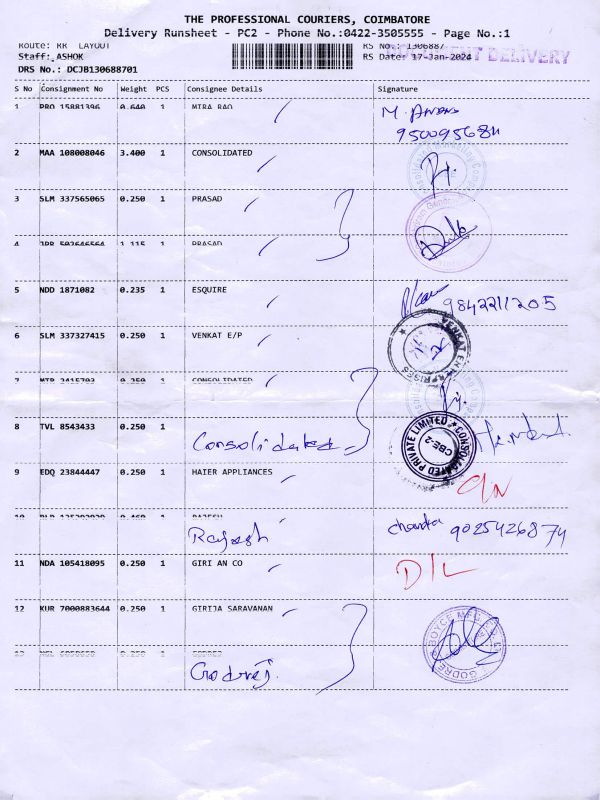 THE PROFESSIONAL COURIERS, COIMBATORE
Delivery Runsheet - PC2 - Phone No.:0422-3505555 - Page No.:1
Route: RR LAYOUT
RS No.: 1306887
Staff: ASHOK
RS Date: 17-Jan-2024
DELIVERY
DRS No.: DCJB130688701
S No Consignment No Weight PCS Consignee Details Signature
1 PRO 15881396 0.640 1 MIRA RAO
950095684
2 MAA 108008046 3.400 1 CONSOLIDATED
3 SLM 337565065 0.250 1 PRASAD
4 JPR 502646564 1.115 1 PRASAD
5 NDD 1871082 0.235 1 ESQUIRE
9842211205
6 SLM 337327415 0.250 1 VENKAT E/P
VENKAT ENTERPRISES
7 MTP 2415703 0.250 1 CONSOLIDATED
8 TVL 8543433 0.250 1
Consolidated
PRIVATE LIMITED * CONSOLIDATED
CBE-2
9 EDQ 23844447 0.250 1 HAIER APPLIANCES
10 0.460 1 RAJESH
Rajesh
9025426874
11 NDA 105418095 0.250 1 GIRI AN CO
D/L
12 KUR 7000883644 0.250 1 GIRIJA SARAVANAN
13 0.250 1 GODREJ
Godrej
GODREJ & BOYCE MFG. CO. LTD